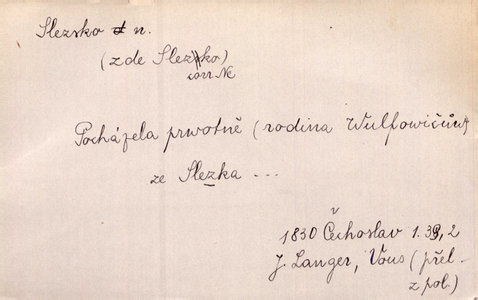 Slezsko n.
(zde Slezko)
corr NČ
Pocházela prwotně (rodina Wulfowičůw)
ze Slezka ...
1830 Čechoslav 1. 39, 2
J. Langer, Vous (přel.
z pol.)